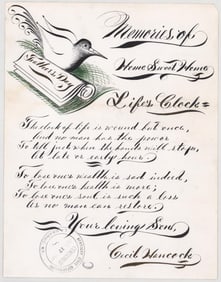 Memories of
Home Sweet Home
Father's Day
Life's Clock
The clock of life is wound but once,
And no man has the power
To tell just when the hands will stop,
At late or early hour.
To lose one's wealth is sad indeed,
To lose one's health is more;
To lose one's soul is such a loss
As no man can restore.
Your loving Son,
Cecil Hancock